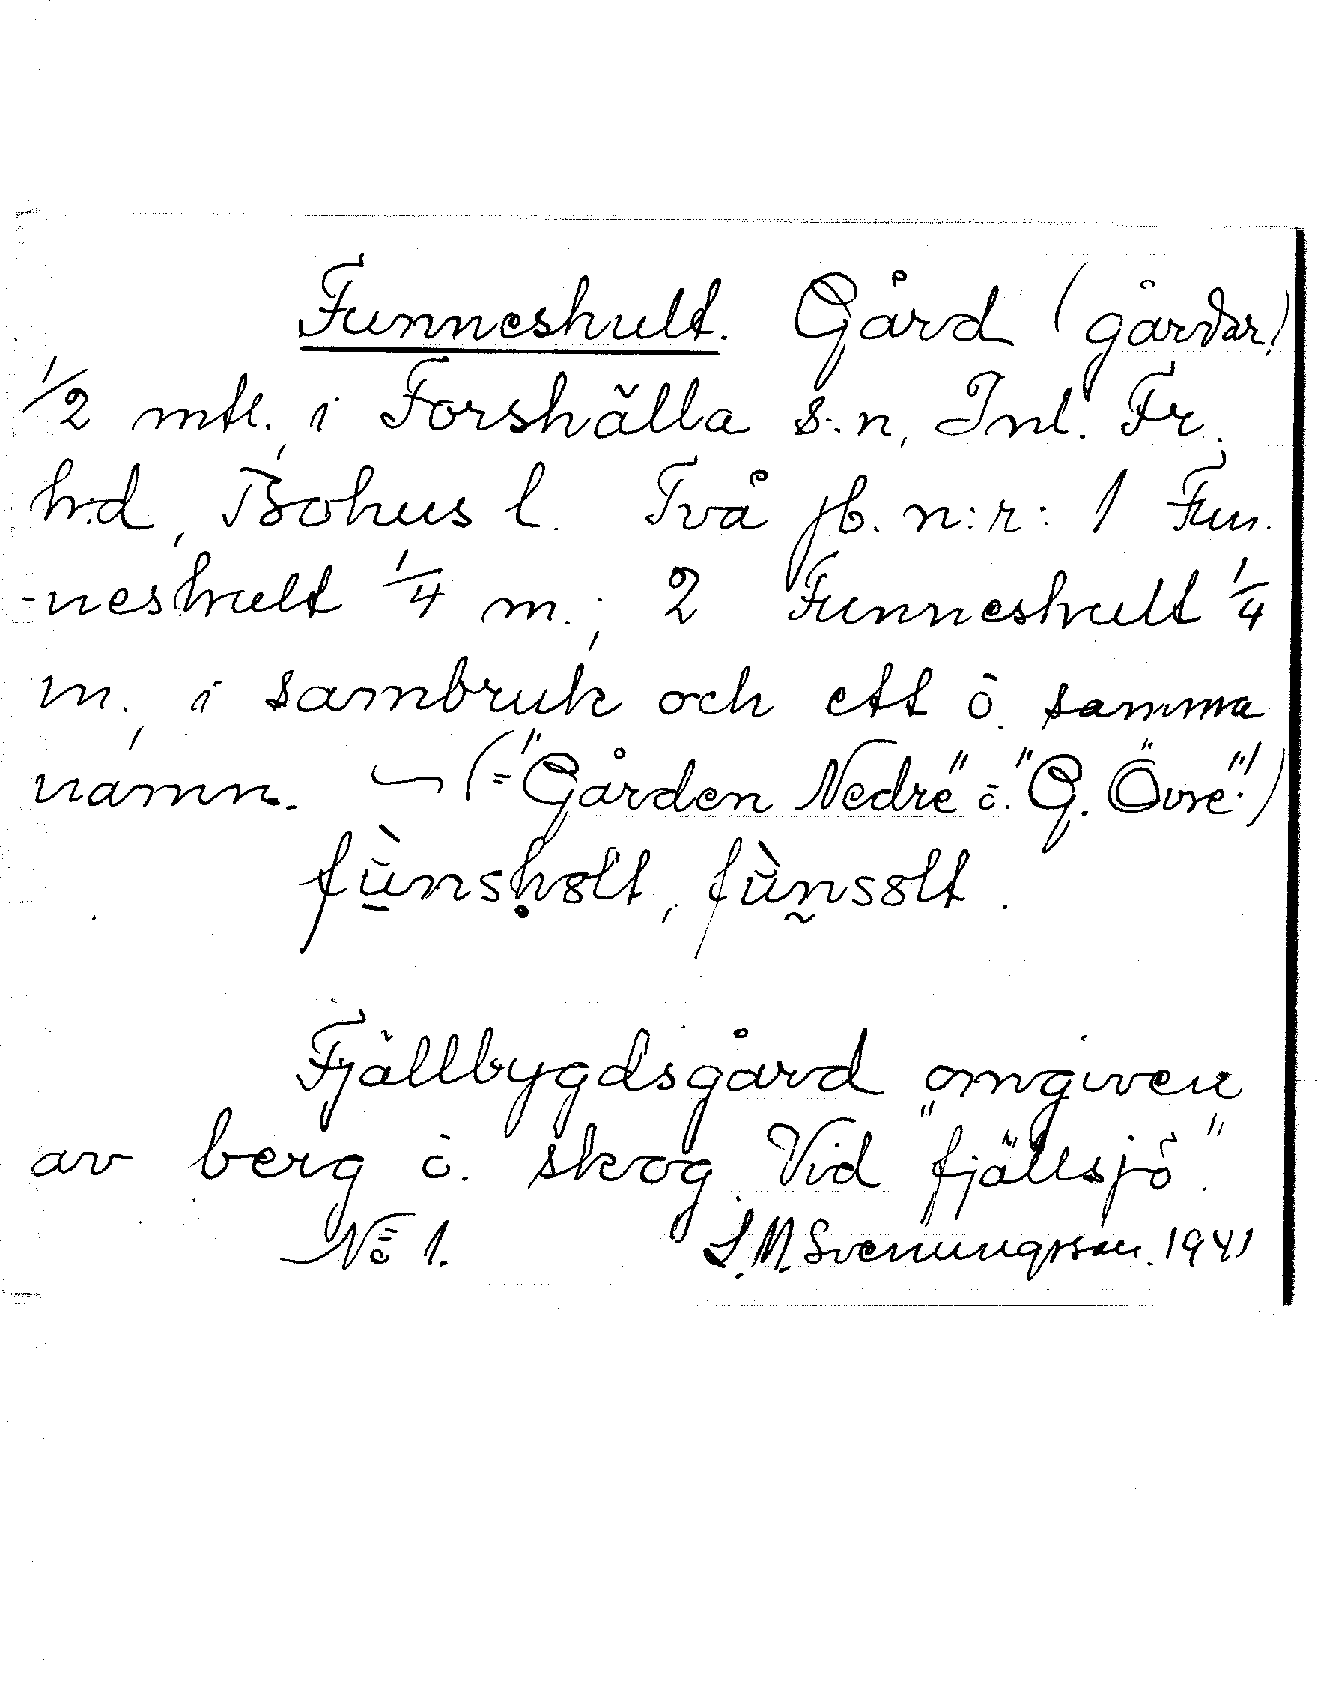 Funneshult. Gård (gårdar!)
1/2 mtl., i Forshälla s:n, Inl. Fr.
h:d, Bohus l. Två jb. n:r: 1 Fun-
-neshult 1/4 m.; 2 Funneshult 1/4
m., i sambruk och ett o. samma
namn. — (="Gården Nedre" o. "G. Övre"!)
fùnshɵlt, fùnsɵlt.
Fjällbygdsgård omgiven
av berg o. skog. Vid "fjällsjö".
No 1. S.M. Svenungsson. 1941